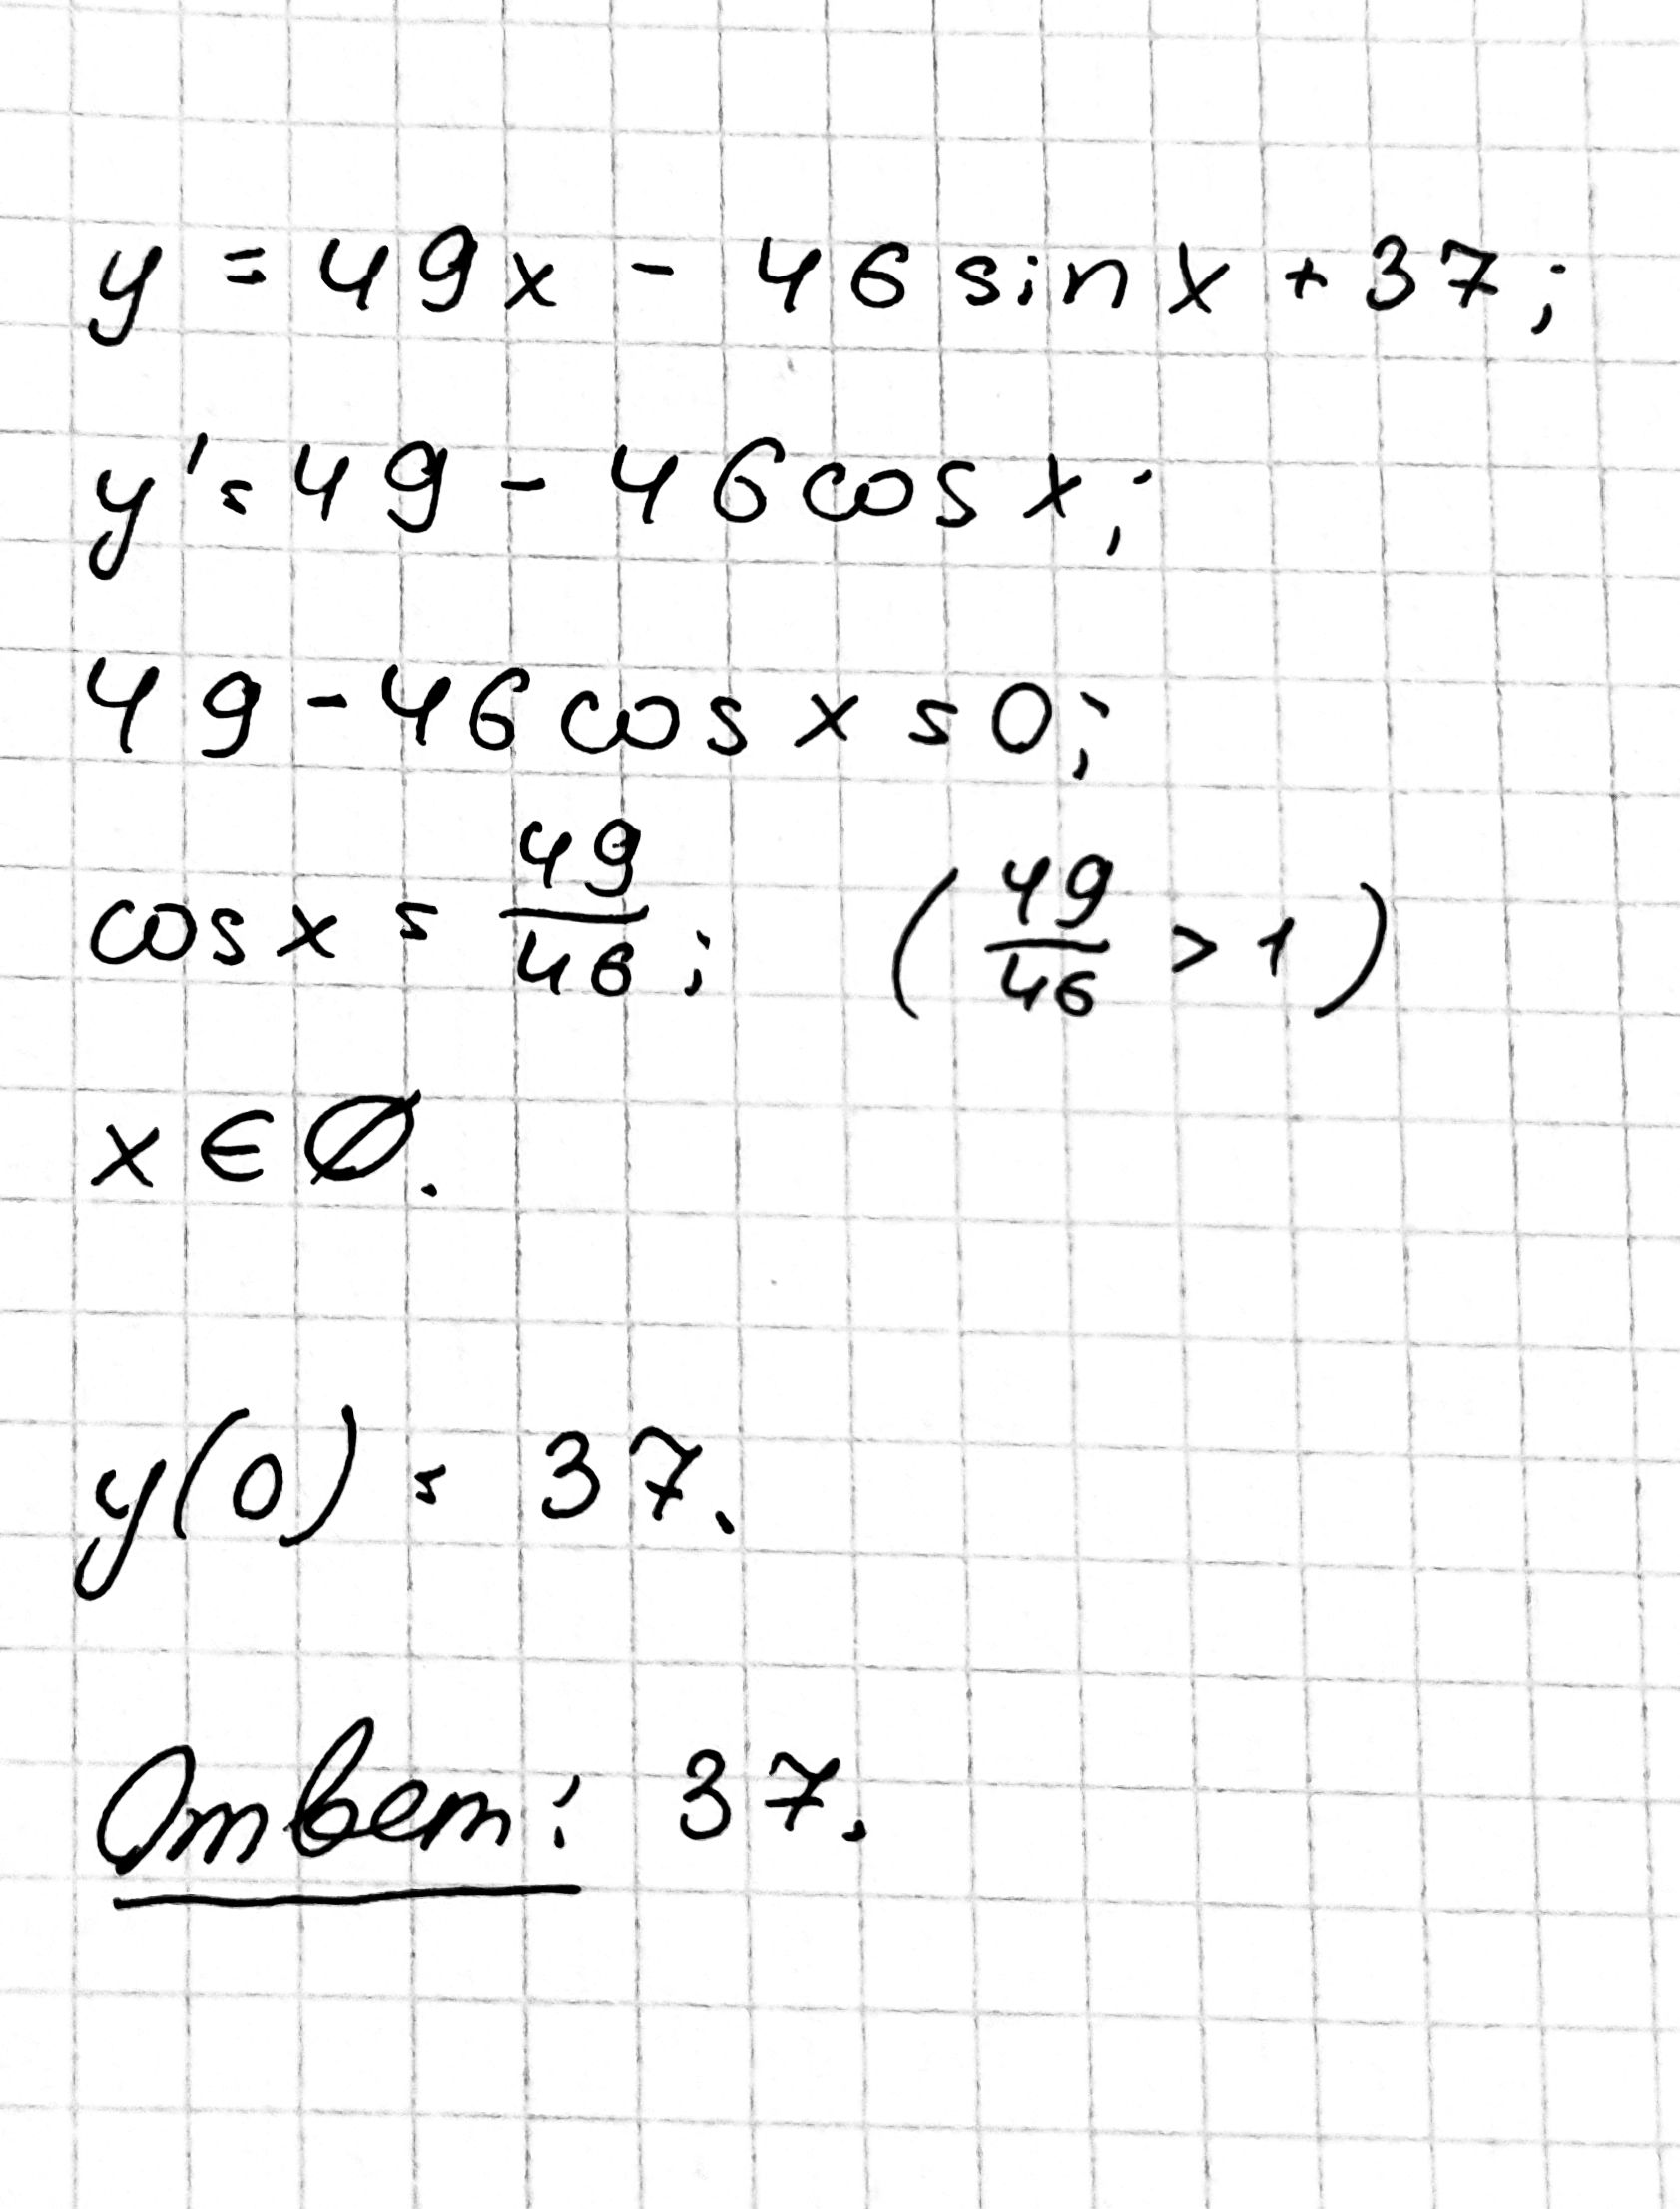 y = 49x - 46 sin x + 37;
y' = 49 - 46 cos x;
49 - 46 cos x = 0;
cos x = 49/46; (49/46 > 1)
x ∈ Ø.
y(0) = 37.
Ответ: 37.